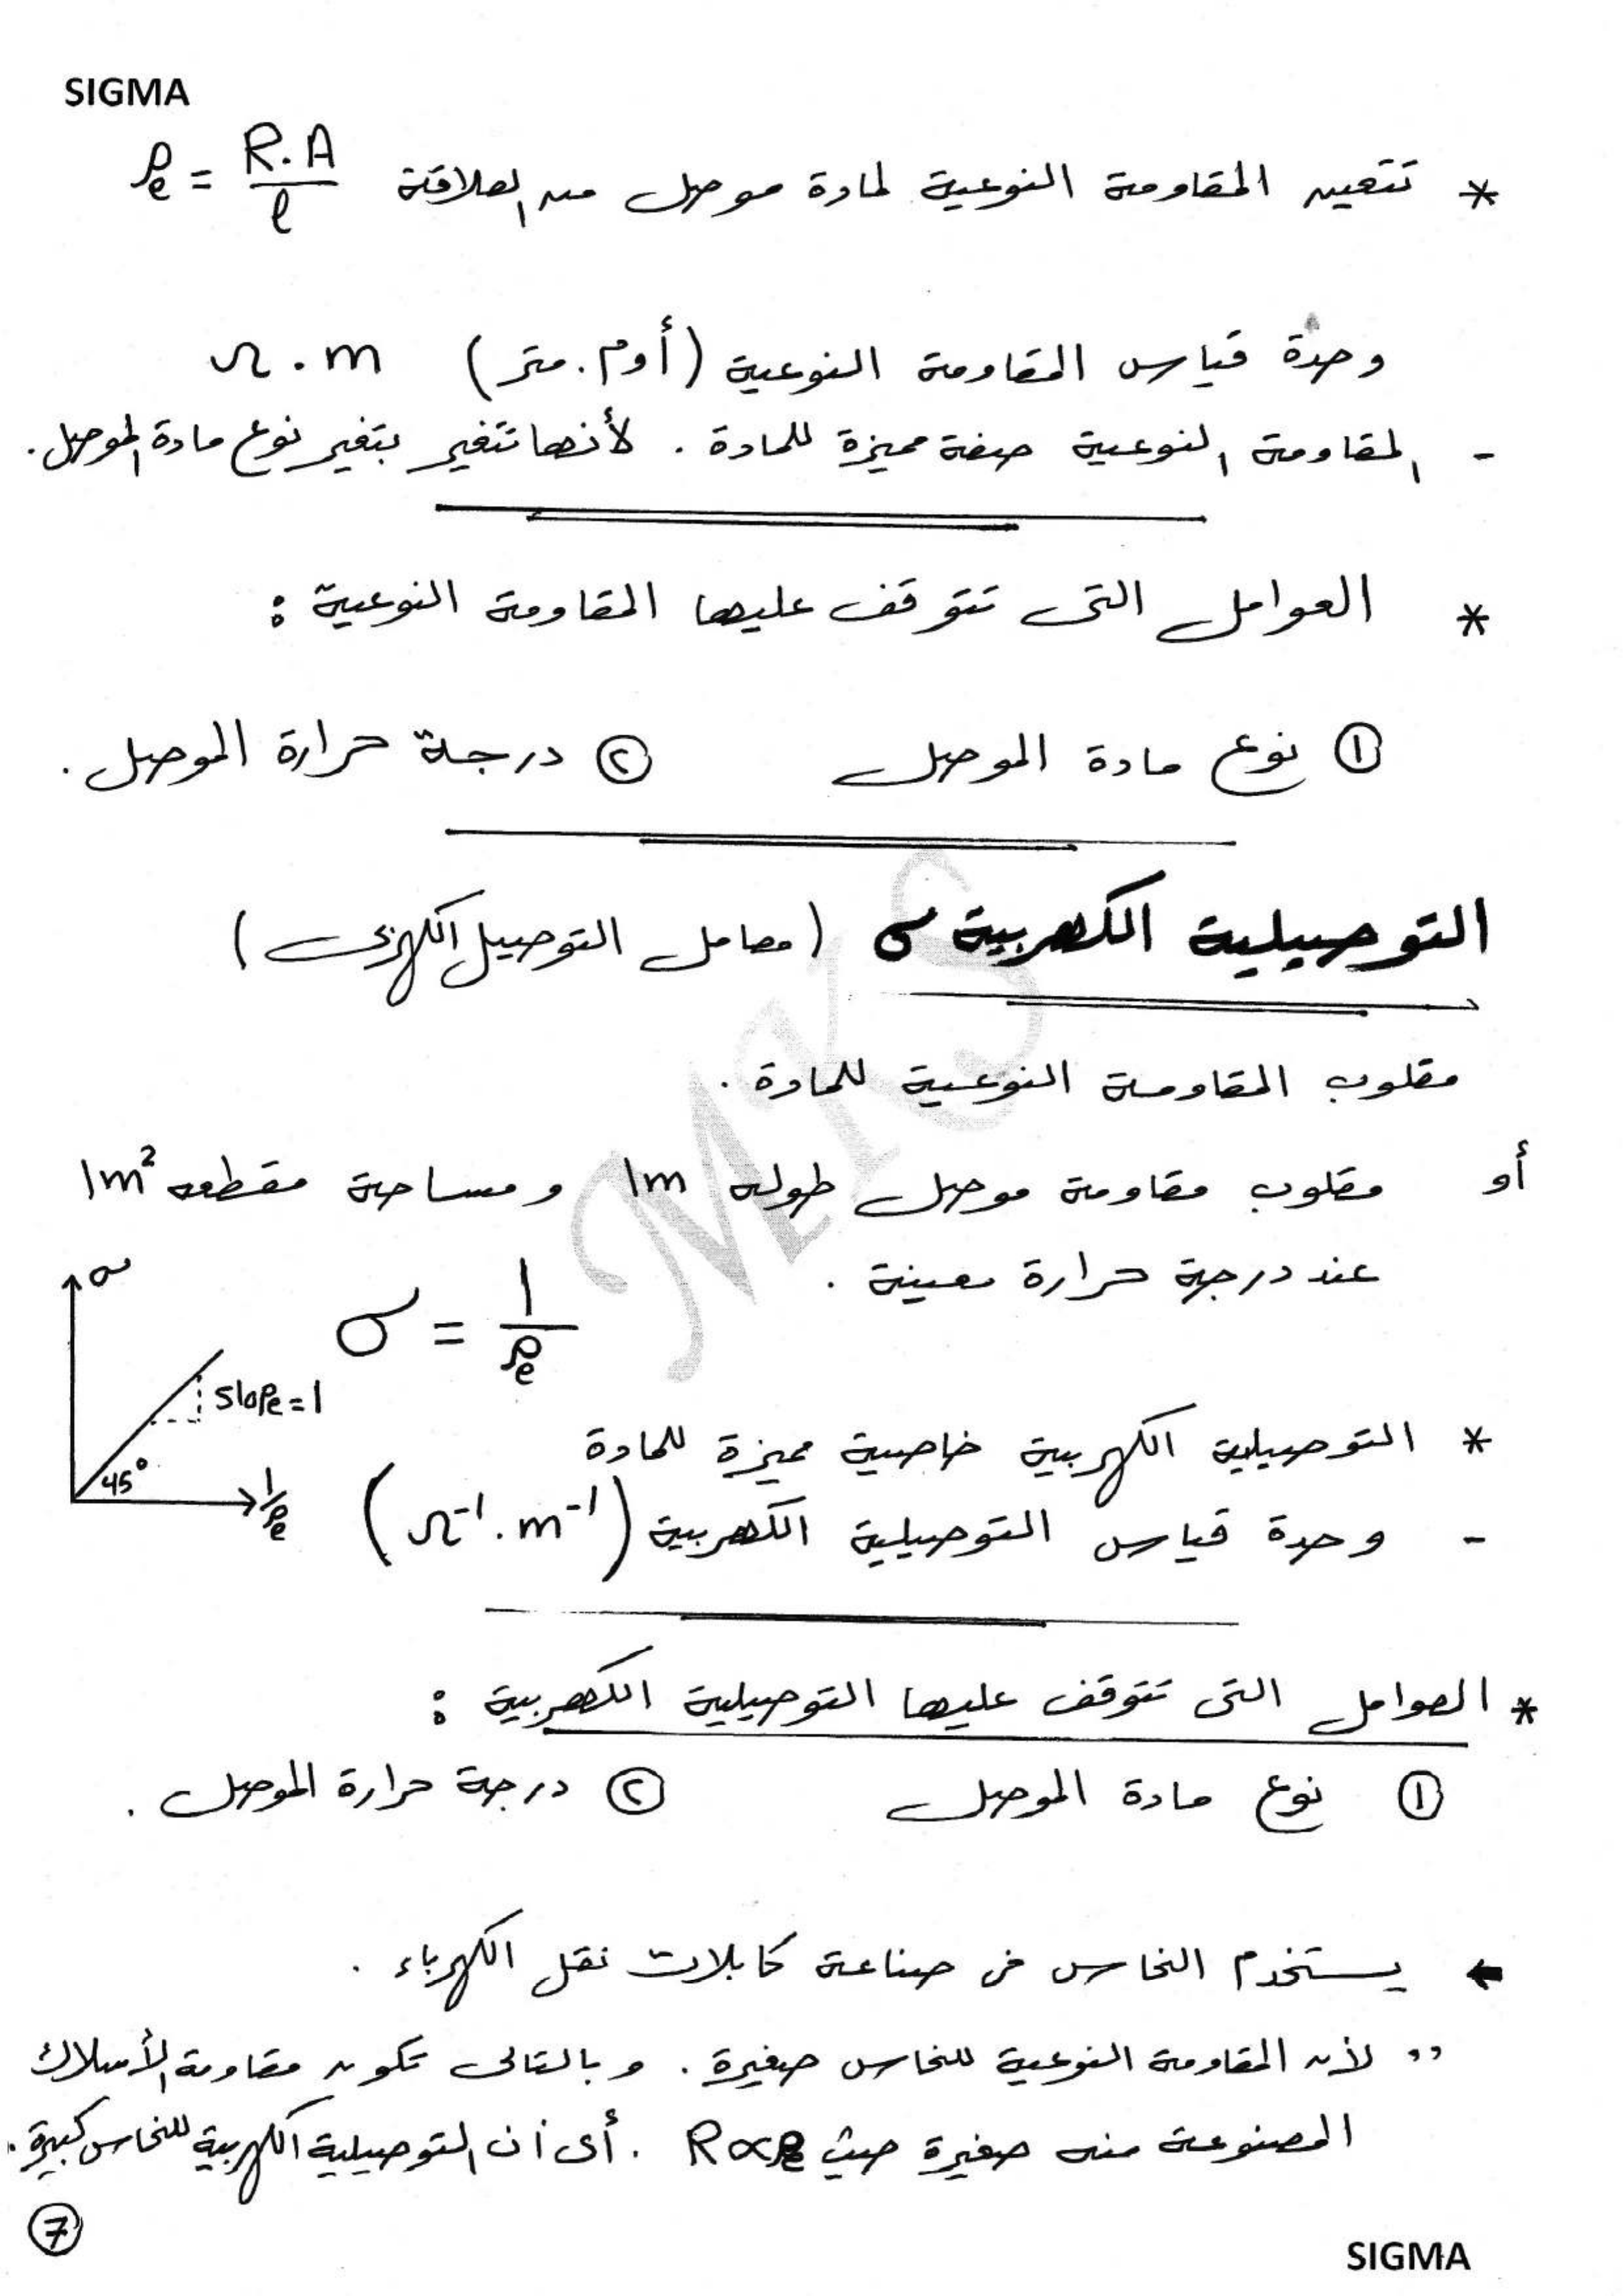 SIGMA
* تتعين المقاومة النوعية لمادة موصل من العلاقة ρe = R.A / ℓ
وحدة قياس المقاومة النوعية (أوم. متر) Ω.m
- المقاومة النوعية صفة مميزة للمادة. لأنها تتغير بتغير نوع مادة الموصل.
* العوامل التى تتوقف عليها المقاومة النوعية :
① نوع مادة الموصل ② درجة حرارة الموصل.
التوصيلية الكهربية σ (معامل التوصيل الكهربى)
مقلوب المقاومة النوعية للمادة.
أو مقلوب مقاومة موصل طوله 1m ومساحة مقطعه 1m²
عند درجة حرارة معينة.
σ = 1 / ρe
σ
slope = 1
45°
1/ρe
* التوصيلية الكهربية خاصية مميزة للمادة
- وحدة قياس التوصيلية الكهربية (Ω⁻¹.m⁻¹)
* العوامل التى تتوقف عليها التوصيلية الكهربية :
① نوع مادة الموصل ② درجة حرارة الموصل.
← يستخدم النحاس فى صناعة كابلات نقل الكهرباء.
,, لأن المقاومة النوعية للنحاس صغيرة. وبالتالى تكون مقاومة الأسلاك
المصنوعة منه صغيرة حيث R∝ρe. أى أن التوصيلية الكهربية للنحاس كبيرة.
⑦
SIGMA
MKS